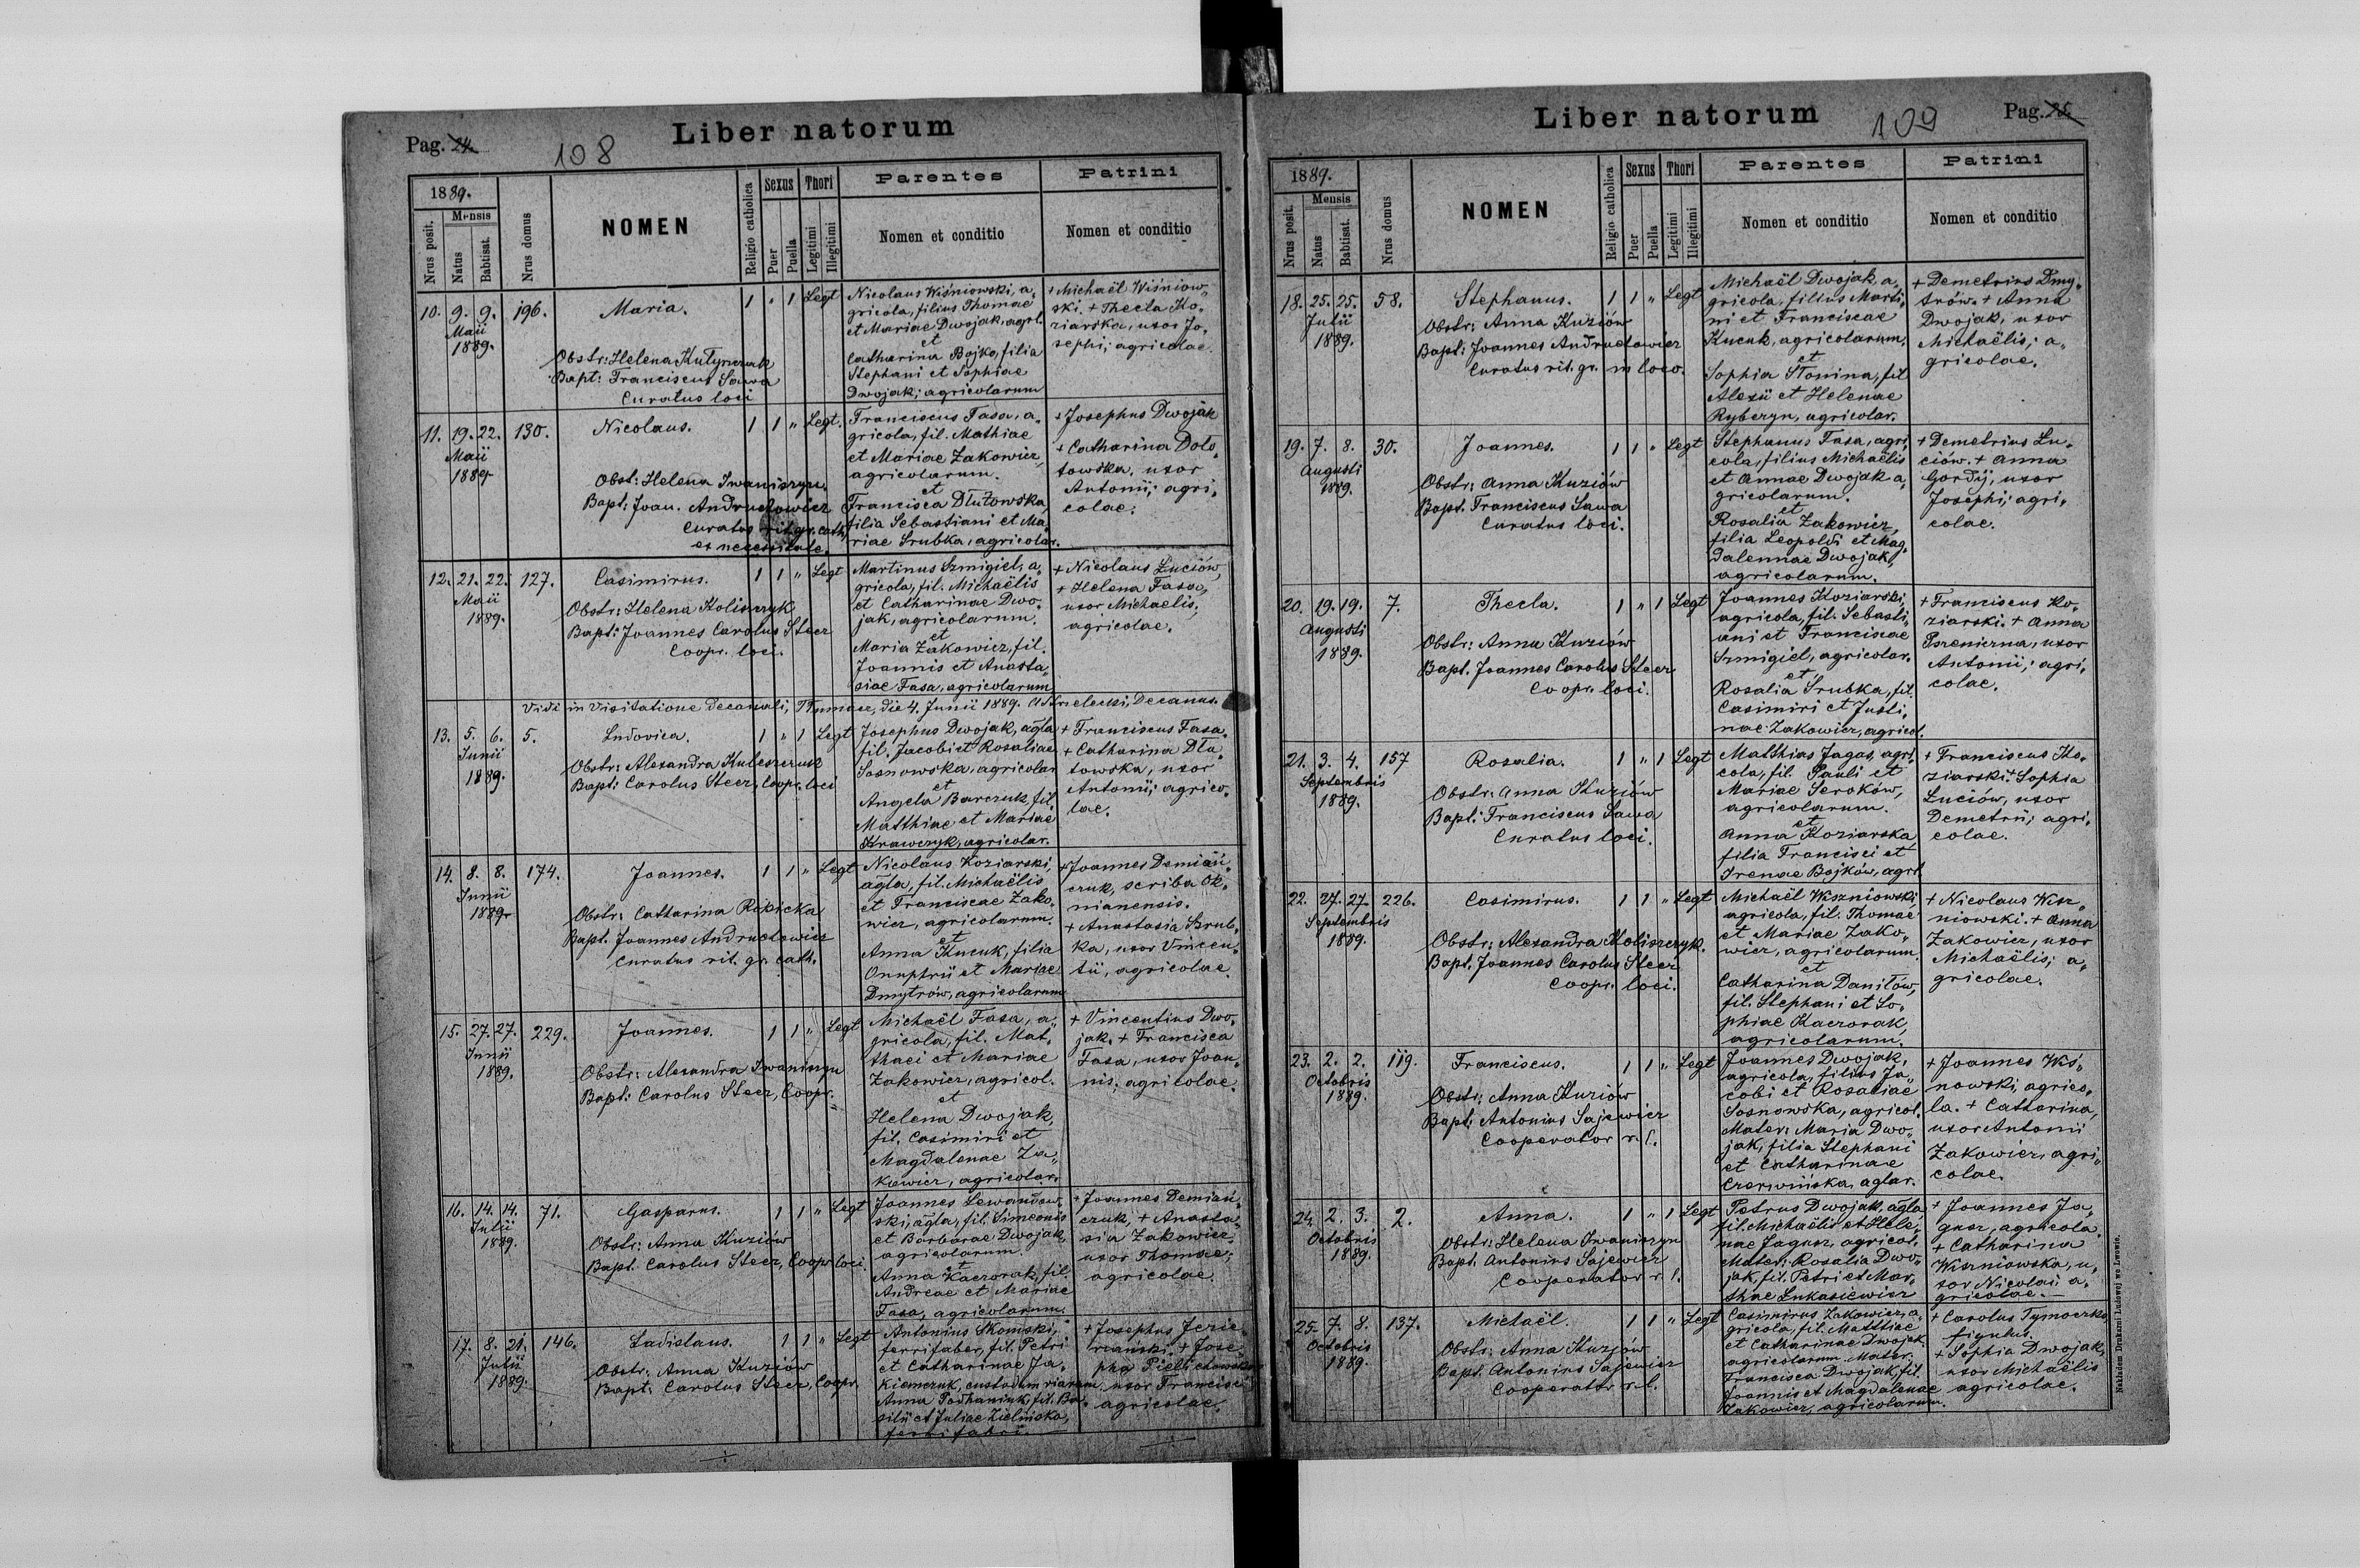 Pag. 24.
108
Liber natorum
1889.
Nrus posit.
Mensis
Natus
Babtisat.
Nrus domus
NOMEN
Religio catholica
Sexus
Puer
Puella
Thori
Legitimi
Illegitimi
Parentes
Nomen et conditio
Patrini
Nomen et conditio
10. 9. 9. 196. Maria. 1 " 1 Legt
Maii
1889.
Obstr: Helena
Bapt: Franciscus Sawa
Curatus loci
Nicolaus Wiśniowski, a„
gricola, filius Thomae
et Mariae Dwojak, agrl.
et
Catharina Bojko, filia
Stephani et Sophiae
Dwojak; agricolarum
+ Michaël Wiśniow„
ski. + Thecla Ko„
ziarska, uxor Jo„
sephi; agricolae.
11. 19. 22. 130. Nicolaus. 1 1 " Legt.
Maii
1889
Obst: Helena Iwaniszyn.
Bapt: Joan. Andruchowicz
Curatus rit. gr. cath.
ex necessitate.
Franciscus Fasa, a„
gricola, fil. Mathiae
et Mariae Zakowicz,
agricolarum.
et
Francisca Dłutowska,
filia Sebastiani et Ma„
riae Srubka, agricolar.
+ Josephus Dwojak
+ Catharina Dolo„
towska, uxor
Antonii; agri„
colae.
12. 21. 22. 127. Casimirus. 1 1 " Legt
Maii
1889.
Obstr: Helena Koliszczyk
Bapt: Joannes Carolus Steer
Coopr. loci.
Martinus Szmigiel, a„
gricola, fil. Michaëlis
et Catharinae Dwo„
jak, agricolarum.
et
Maria Zakowicz, fil.
Joannis et Anasta„
siae Fasa, agricolarum
+ Nicolaus Łuciów,
+ Helena Fasa,
uxor Michaelis;
agricolae.
Vidi in visitatione decanali, Tłumacz, die 4. Junii 1889. Decanus.
13. 5. 6. 5. Ludovica. 1 " 1 Legt
Junii
1889.
Obstr: Alexandra
Bapt: Carolus Steer, Coopr. loci
Josephus Dwojak, agla
fil. Jacobi et Rosaliae
Sosnowska, agricolar
et
Angela Barczuk, fil.
Matthiae et Mariae
Krawczyk, agricolar.
+ Franciscus Fasa.
+ Catharina Dlu„
towska, uxor
Antonii; agrico„
lae.
14. 8. 8. 174. Joannes. 1 1 " Legt
Junii
1889
Obstr: Catharina Ripicka
Bapt. Joannes Andruchowicz
Curatus rit. gr. cath.
Nicolaus Koziarski,
agla, fil. Michaëlis
et Franciscae Zako„
wicz, agricolarum.
et
Anna Kucuk, filia
Onuphrii et Mariae
Dmytrów, agricolarum
+ Joannes Demiań„
czuk, scriba Ok„
nianensis.
+ Anastasia Szrub„
ka, uxor Vincen„
tii, agricolae.
15. 27. 27. 229. Joannes. 1 1 " Legt
Junii
1889.
Obstr: Alexandra Iwaniszyn
Bapt: Carolus Steer, Coopr.
Michaël Fasa, a„
gricola, fil. Mat„
thaei et Mariae
Zakowicz, agricol.
et
Helena Dwojak,
fil. Casimiri et
Magdalenae Za„
kowicz, agricolar.
+ Vincentius Dwo„
jak. + Francisca
Fasa, uxor Joan„
nis; agricolae.
16. 14. 14. 71. Gasparus. 1 1 " Legt
Julii
1889.
Obstr: Anna Kuziów
Bapt. Carolus Steer, Coopr loci.
Joannes Lewandow„
ski, agla, fil. Simeonis
et Barbarae Dwojak,
agricolarum.
et
Anna Kaczorak, fil.
Andreae et Mariae
Fasa, agricolarum.
+ Joannes Demiań„
czuk, + Anasta„
sia Zakowicz,
uxor Thomae;
agricolae.
17. 8. 21. 146. Ladislaus. 1 1 " Legt
Julii
1889
Obstr: Anna Kuziów
Bapt: Carolus Steer, Coopr.
Antonius Skomski,
ferrifaber, fil. Petri
et Catharinae Ja„
kiemczuk, custodum viarum.
Anna Podhaniuk, fil. Ba„
silii et Juliae Zielińska,
+ Josephus
+ Jose„
pha
uxor Francisci
agricolae.
Liber natorum
109
Pag. 25.
1889.
Nrus posit.
Mensis
Natus
Babtisat.
Nrus domus
NOMEN
Religio catholica
Sexus
Puer
Puella
Thori
Legitimi
Illegitimi
Parentes
Nomen et conditio
Patrini
Nomen et conditio
18. 25. 25. 58. Stephanus. 1 1 " Legt
Julii
1889.
Obstr: Anna Kuziów
Bapt: Joannes Andruchowicz
Curatus rit. gr. in loco.
Michaël Dwojak, a„
gricola, filius Marti„
ni et Franciscae
Kucuk, agricolarum,
et
Sophia Słonina, fil
Alexii et Helenae
Ryberyn, agricolar.
+ Demetrius Dmy„
trów. + Anna
Dwojak, uxor
Michaëlis; a„
gricolae.
19. 7. 8. 30. Joannes. 1 1 " Legt
Augusti
1889.
Obstr: Anna Kuziów
Bapt. Franciscus Sawa
Curatus loci.
Stephanus Fasa, agri„
cola, filius Michaëlis
et Annae Dwojak a„
gricolarum.
et
Rosalia Zakowicz,
filia Leopoldi et Mag„
dalennae Dwojak,
agricolarum.
+ Demetrius Lu„
ciów. + Anna
Gordij, uxor
Josephi; agri„
colae.
20. 19. 19. 7. Thecla. 1 " 1 Legt
Augusti
1889.
Obstr: Anna Kuziów
Bapt. Joannes Carolus Steer
Coopr. loci.
Joannes Koziarski,
agricola, fil. Sebasti„
ani et Franciscae
Szmigiel, agricolar.
et
Rosalia Srubka, fil.
Casimiri et Justi„
nae Zakowicz, agricol.
+ Franciscus Ko„
ziarski. + Anna
Pszenierna, uxor
Antonii; agri„
colae.
21. 3. 4. 157 Rosalia. 1 " 1 Legt
Septembris
1889.
Obstr: Anna Kuziów
Bapt: Franciscus Sawa
Curatus loci.
Matthias Jagas, agri„
cola, fil. Pauli et
Mariae Seroków,
agricolarum.
et
Anna Koziarska,
filia Francisci et
Irenae Bojków, agrl.
+ Franciscus Ko„
ziarski. + Sophia
Łuciów, uxor
Demetrii; agri„
colae.
22. 27. 27. 226. Casimirus. 1 1 " Legt
Septembris
1889.
Obstr: Alexandra Koliszczyk.
Bapt. Joannes Carolus Steer
Coopr. loci.
Michaël Wiszniowski,
agricola, fil. Thomae
et Mariae Zako„
wicz, agricolarum.
et
Catharina Daniłów,
fil. Stephani et So„
phiae Kaczorak,
agricolarum.
+ Nicolaus Wisz„
niowski. + Anna
Zakowicz, uxor
Michaëlis; a„
gricolae.
23. 2. 2. 119. Franciscus. 1 1 " Legt
Octobris
1889.
Obstr: Anna Kuziów
Bapt. Antonius Sajewicz
Cooperator r. l.
Joannes Dwojak,
agricola, filius Ja„
cobi et Rosaliae
Sosnowska, agricol.
Mater: Maria Dwo„
jak, filia Stephani
et Catharinae
Czerwińska, aglar.
+ Joannes Wiś„
nowski, agrico„
la. + Catharina,
uxor Antonii
Zakowicz, agri„
colae.
24. 2. 3. 2. Anna. 1 " 1 Legt
Octobris
1889.
Obstr: Helena Iwaniszyn
Bapt. Antonius Sajewicz
Cooperator r. l.
Petrus Dwojak, agla,
fil. Michaëlis et Hele„
nae Jagusz, agricol.
Mater: Rosalia Dwo„
jak, fil. Petri et Mar„
thae Lukasiewicz
+ Joannes Ja„
gusz, agricola.
+ Catharina
Wiszniowska, u„
xor Nicolai a„
gricolae.
25. 7. 8. 137. Michaël. 1 1 " Legt
Octobris
1889.
Obstr: Anna Kuzjów
Bapt. Antonius Sajewicz
Cooperator r. l.
Casimirus Zakowicz, a„
gricola, fil. Matthiae
et Catharinae Dwojak
agricolarum. Mater:
Francisca Dwojak, fil.
Joannis et Magdalenae
Zakowicz, agricolarum.
+ Carolus Tymoczko,
figulus.
+ Sophia Dwojak,
uxor Michaëlis
agricolae.
Nakładem Drukarni Ludowej we Lwowie.